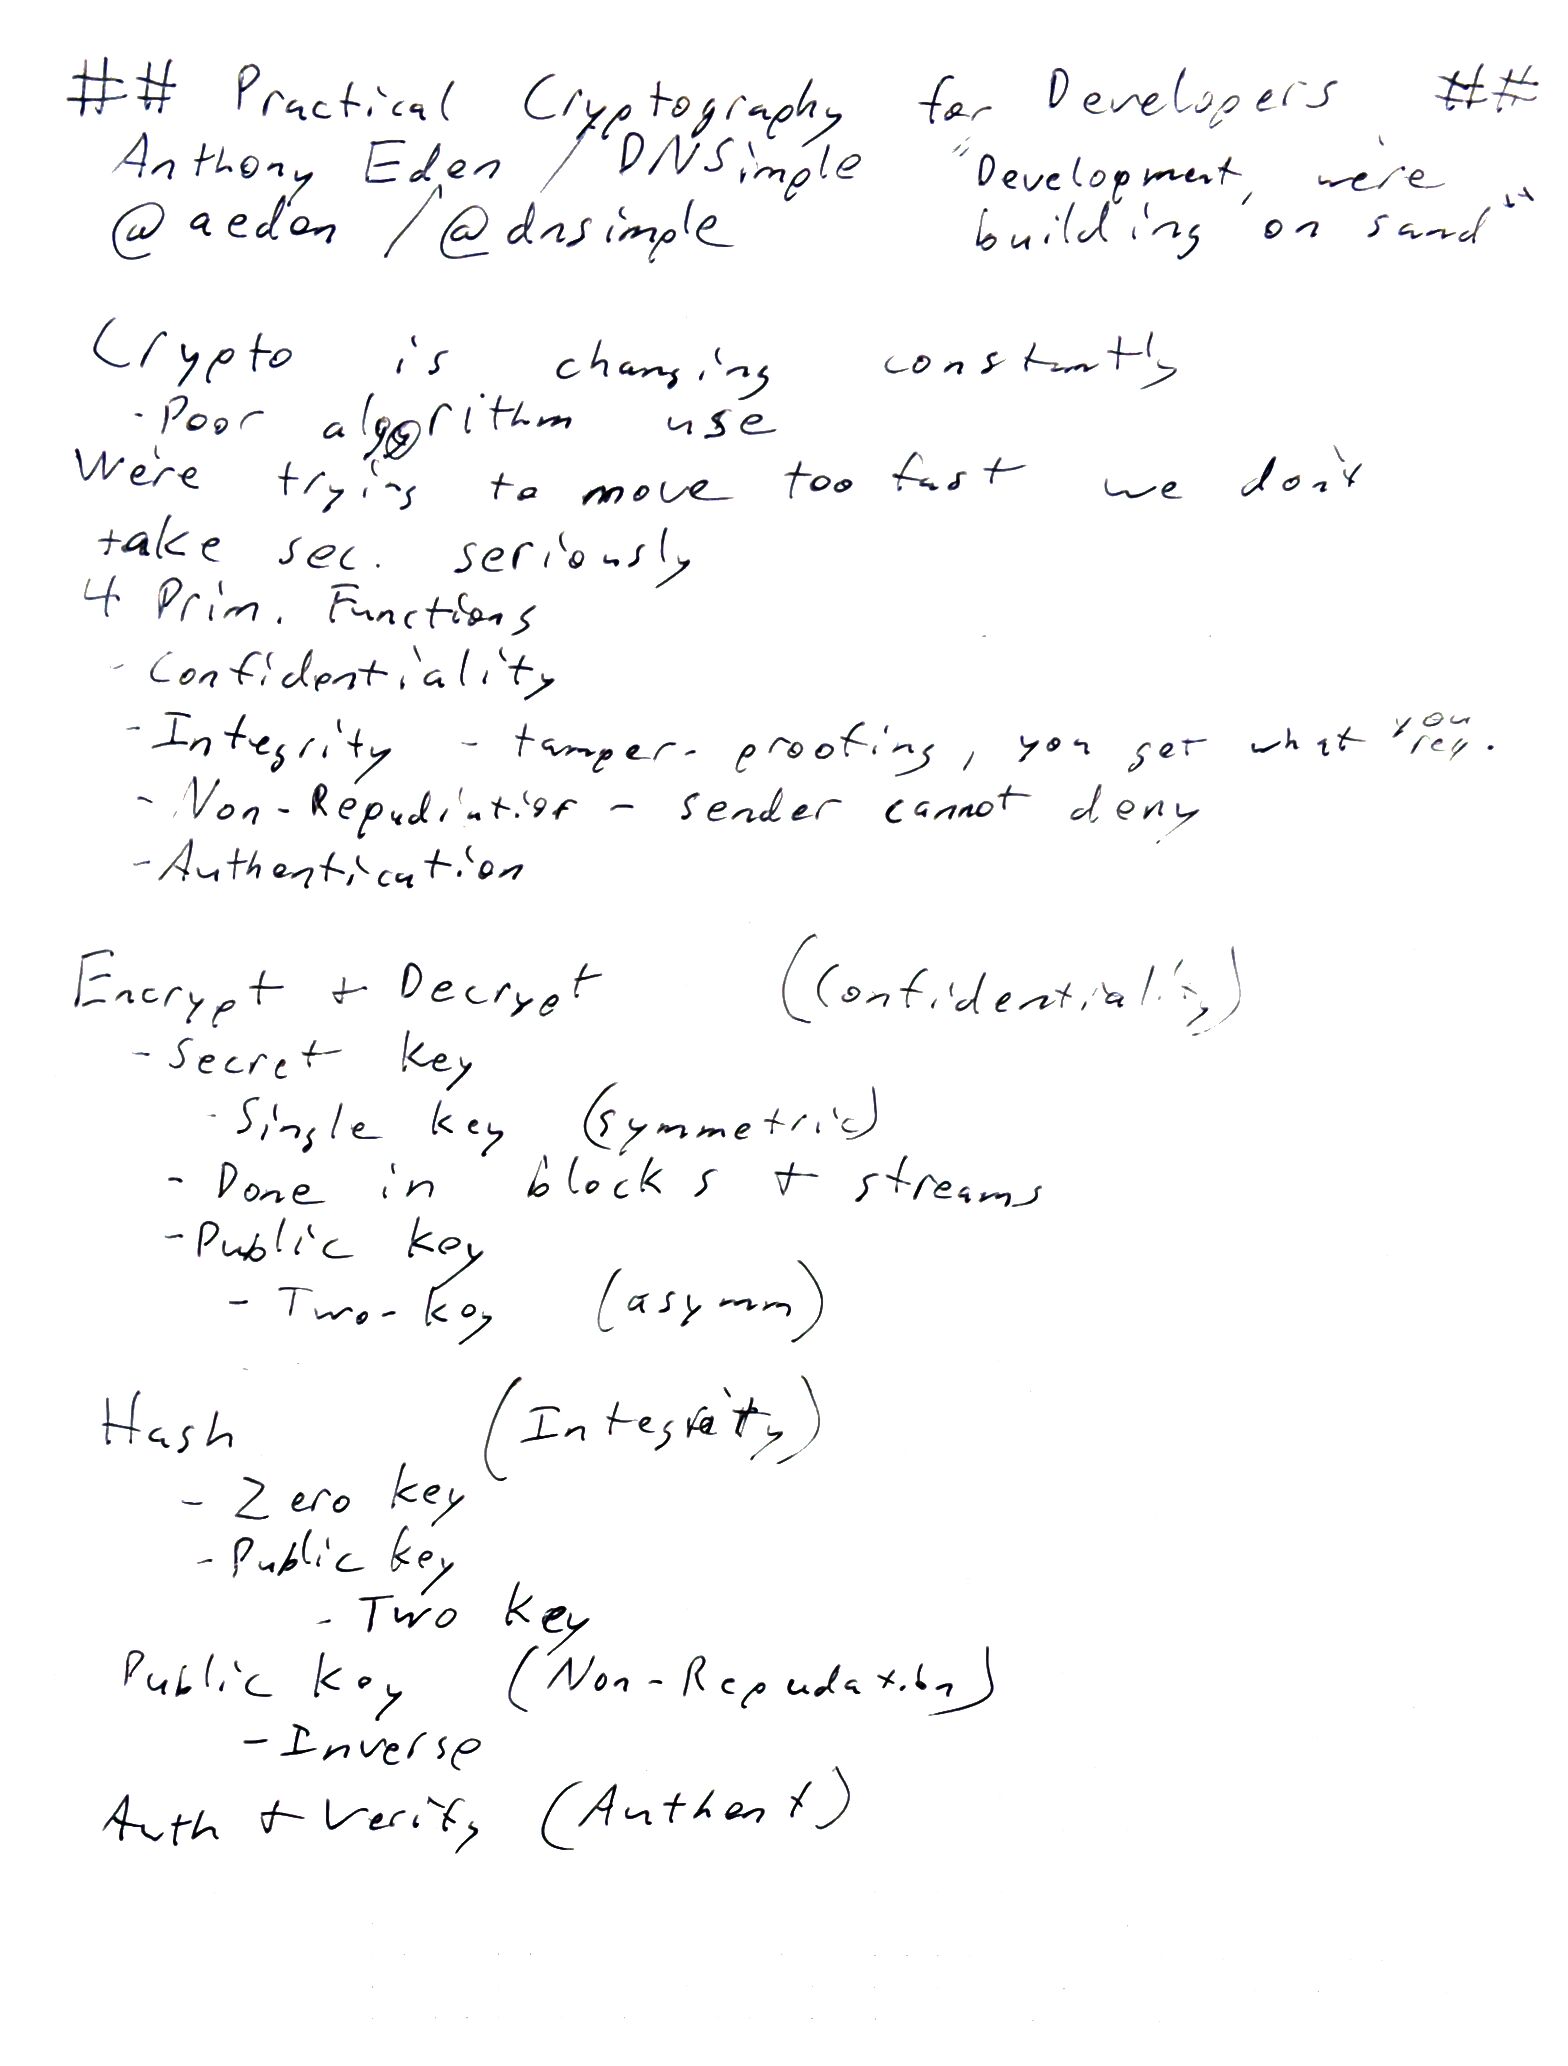 ## Practical Cryptography for Developers ##
Anthony Eden / DNSimple
@aeden / @dnsimple
"Development, we're
building on sand"
Crypto is changing constantly
- Poor algorithm use
We're trying to move too fast we don't
take sec. seriously
4 Prim. Functions
- Confidentiality
- Integrity - tamper-proofing, you get what you req.
- Non-Repudiation - sender cannot deny
- Authentication
Encrypt + Decrypt (Confidentiality)
- Secret key
- Single key (symmetric)
- Done in blocks + streams
- Public key
- Two-key (asymm)
Hash (Integrity)
- Zero key
- Public key
- Two key
Public key (Non-Repudation)
- Inverse
Auth + Verify (Authent)